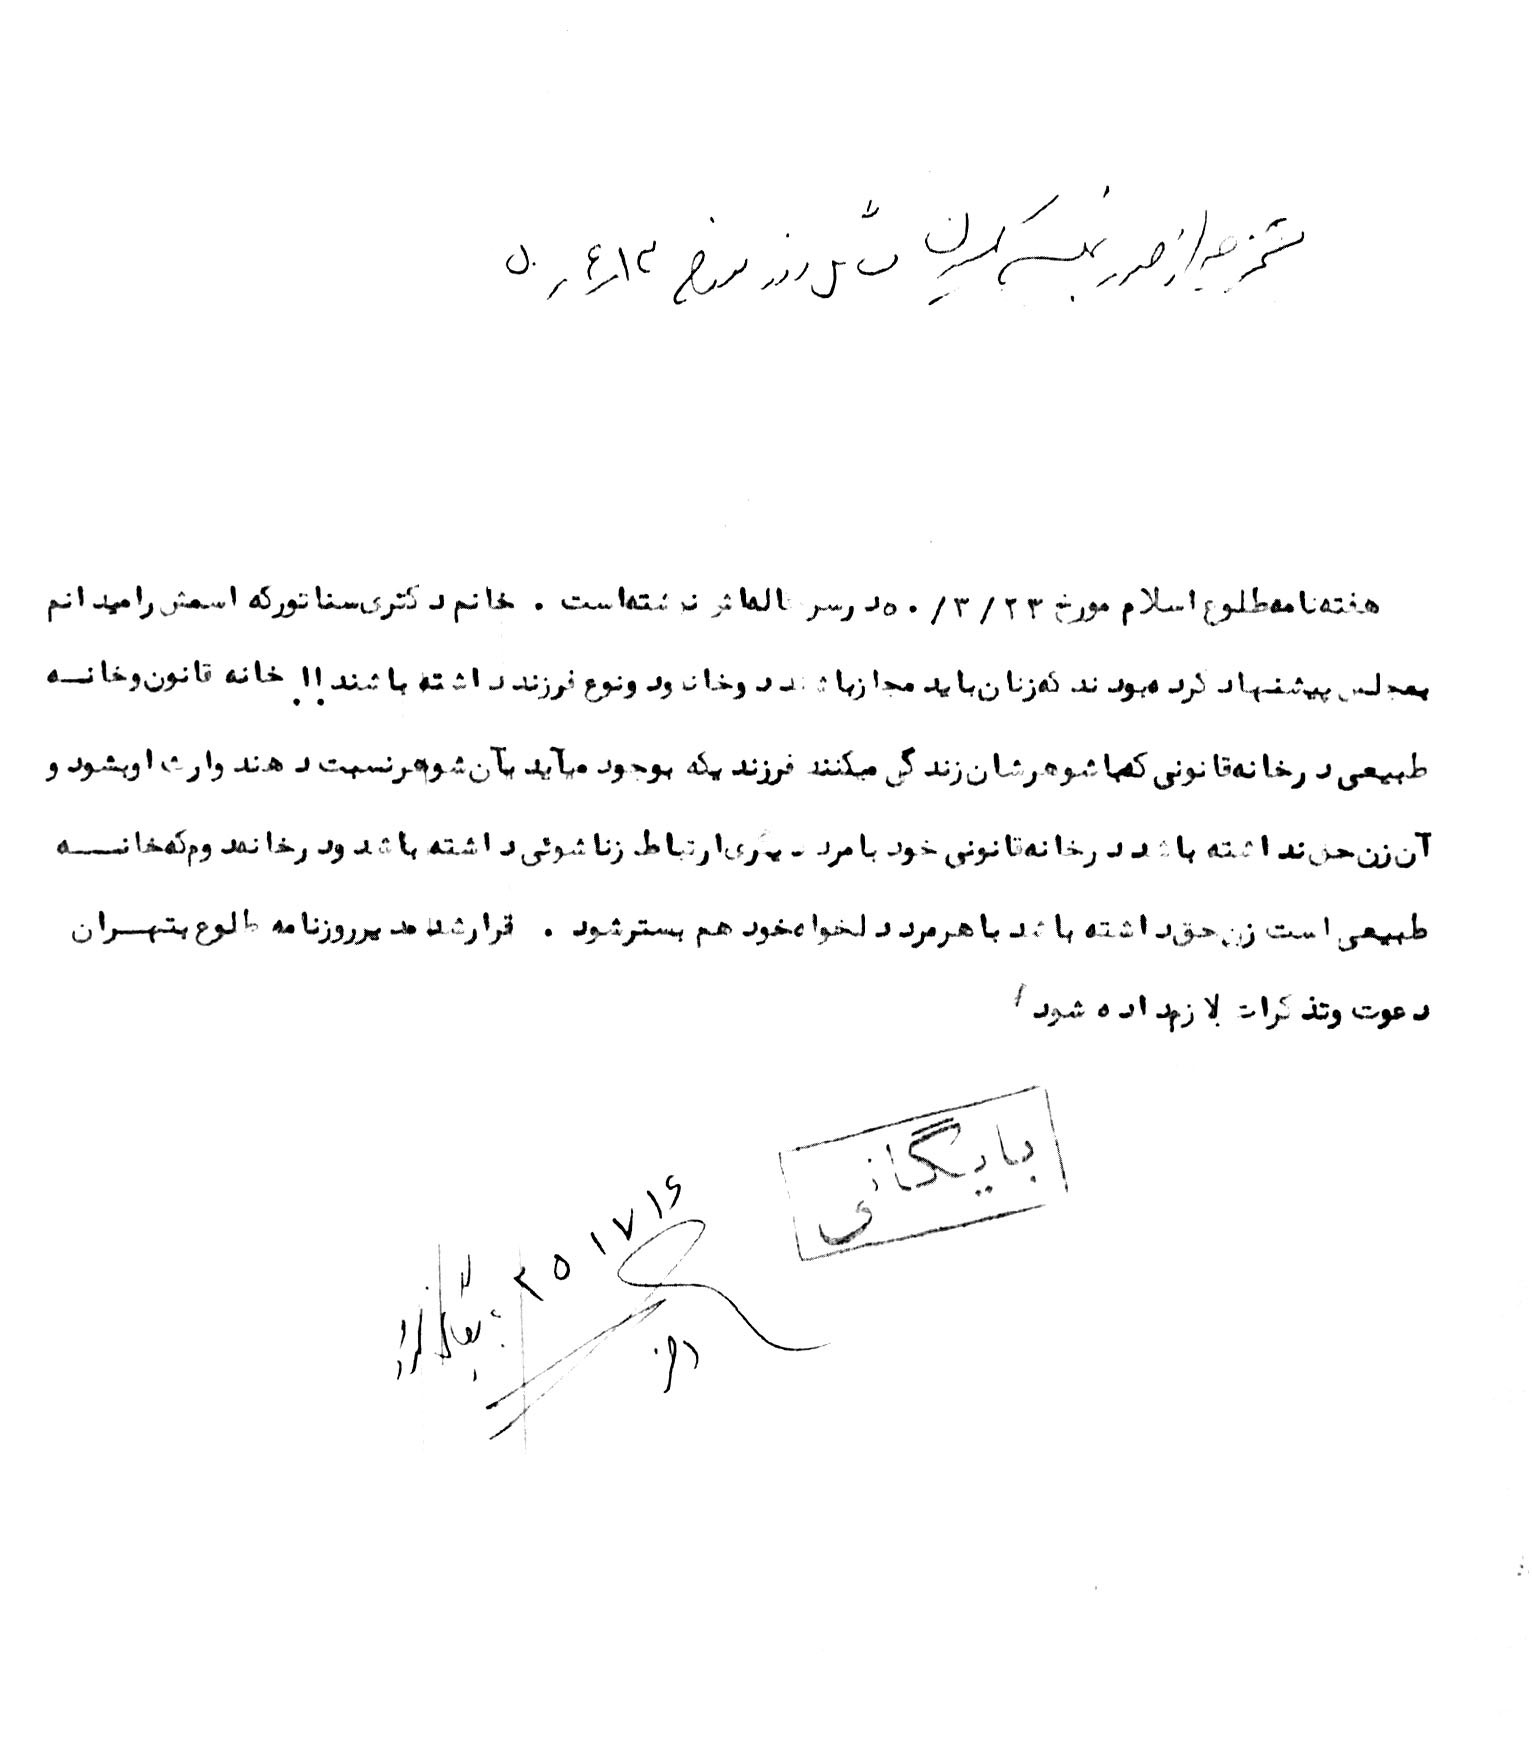 مستخرجه از صورتجلسه کمیسیون مسائل روز مورخ ۵۰/۴/۱۳
هفته‌نامه طلوع اسلام مورخ ۵۰/۳/۲۳ در سرمقاله‌اش نوشته‌است . خانم دکتری سناتور که اسمش را میدانم
بمجلس پیشنهاد کرده‌بودند که زنان باید مجاز باشند دو خانه و دو نوع فرزند داشته باشند!! خانه قانون و خانه
طبیعی در خانه قانونی که با شوهرشان زندگی میکنند فرزندیکه بوجود میآید بآن شوهر نسبت دهند وارث او بشود و
آن زن حق نداشته باشد در خانه قانونی خود با مرد دیگری ارتباط زناشوئی داشته باشد و در خانه دوم که خانه
طبیعی است زن حق داشته باشد با هر مرد دلخواه خود هم بستر شود . قرار شد مدیر روزنامه طلوع بتهران
دعوت و تذکرات لازم داده شود
بایگانی
۳۵۱۷۱۶